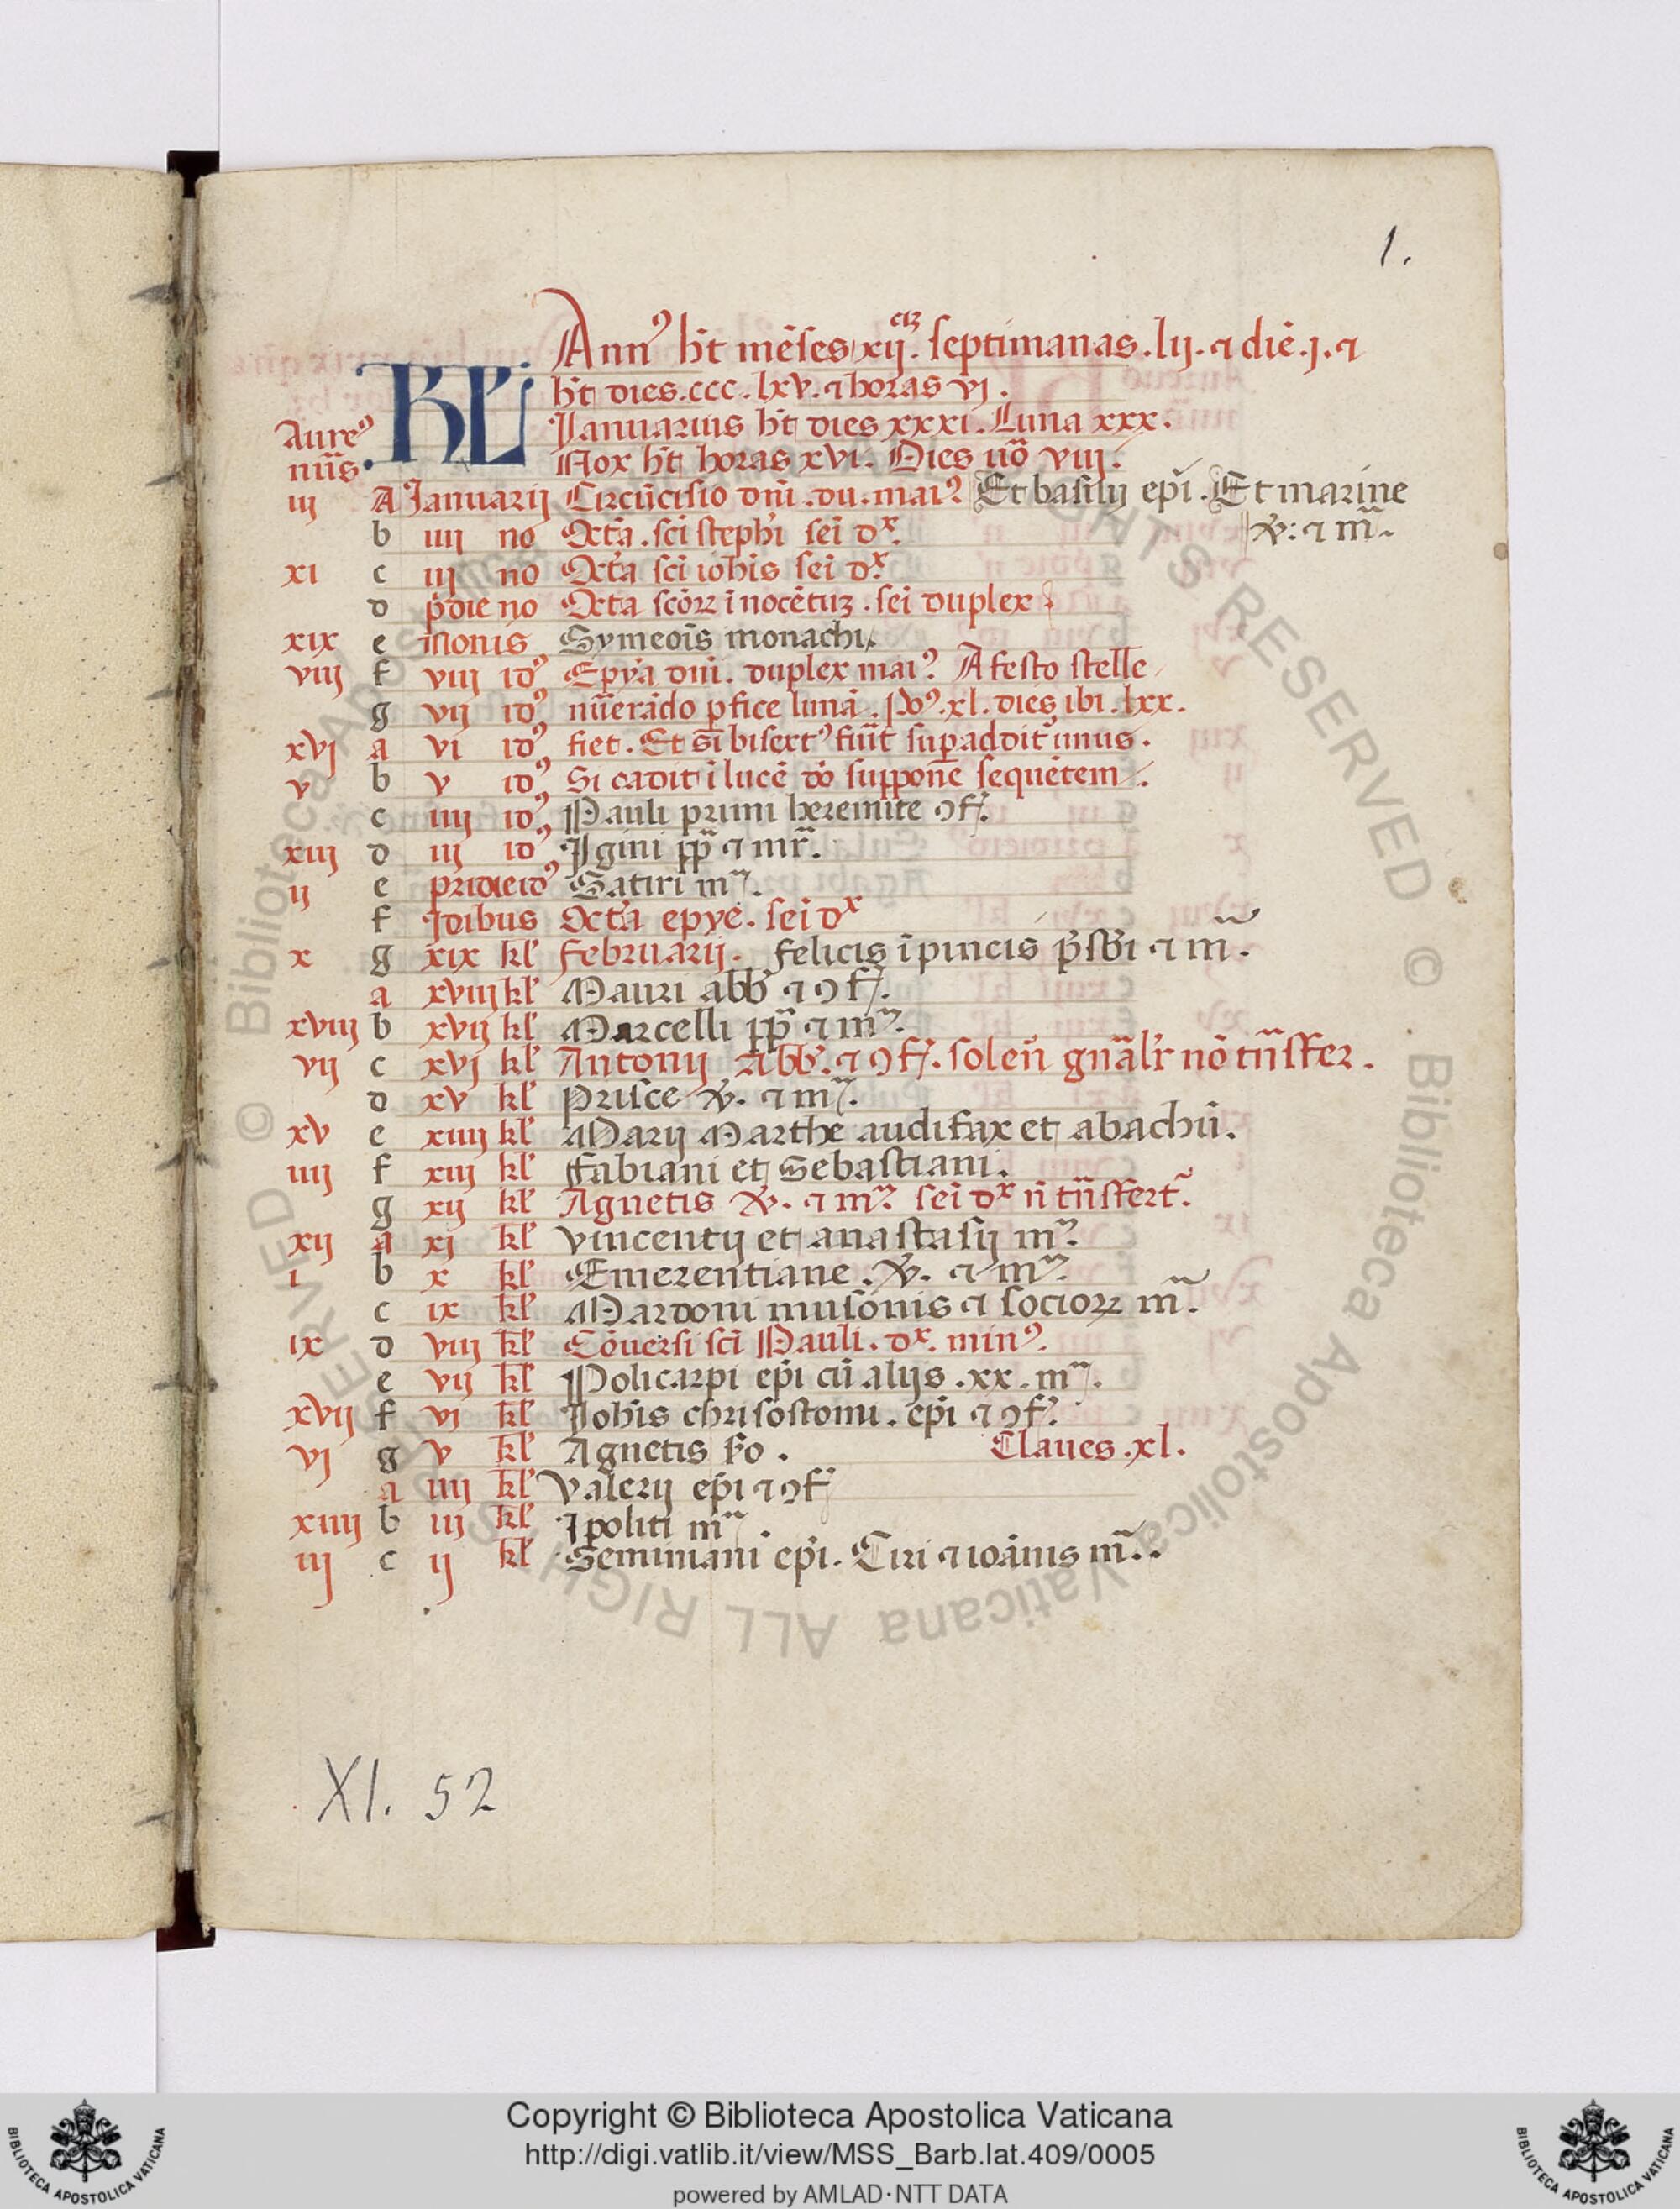 1.
Annꝰ ht̄ mēses xij. septimanas . lij . ⁊ diē . j . ⁊
ht̄ dies . ccc . lxv . ⁊ horas vj .
Aureꝰ KL Januarius ht̄ dies xxxi . Luna xxx .
nūs . Nox ht̄ horas xvi . Dies uō viij .
iij A Januarij Circūcisio dn̄i . du . maiꝰ Et basilij ep̄i . Et marine
b iiij no Octā . sc̄i steph̄i sei dx . v̄ : ⁊ m̄ .
xi c iij no Octā sc̄i ioh̄is sei dx
d p̄die no Octa sc̄oꝝ īnocētuꝫ . sei duplex
xix e nonis Symeōis monachi .
viij f viij idꝰ Epyā dn̄i . duplex maiꝰ A festo stelle
g vij idꝰ nūerādo ꝑfice lunā . Poꝰ . xl . dies ibi . lxx .
xvj a vi idꝰ fiet . Et sī bisextꝰ fūīt suꝑaddit̄ unus .
v b v idꝰ Si cadit ī lucē dō supponē sequētem .
c iiij idꝰ Pauli primi heremite ꝯf .
xiij d iij idꝰ Igini pp̄ ⁊ mr̄ .
ij e pridie idꝰ Satiri m̄ .
f Idibus Octā epye . sei dx
x g xix kl̄ februarij . felicis ī pincis p̄sb̄i ⁊ m̄ .
a xviij kl̄ Mauri abb̄ ⁊ ꝯf .
xviij b xvij kl̄ Marcelli pp̄ ⁊ m̄ .
vij c xvj kl̄ Antonij abb̄ . ⁊ ꝯf . solen̄ gn̄alr̄ nō tn̄sfer .
d xv kl̄ prisce v̄ . ⁊ m̄ .
xv e xiiij kl̄ Marij Marthe audifax et abachū .
iiij f xiij kl̄ Fabiani et Sebastiani .
g xij kl̄ Agnetis v̄ . ⁊ m̄ sei dx n̄ tn̄sfert̄ .
xij a xj kl̄ vincentij et anastasij m̄
i b x kl̄ Emerentiane . v̄ . ⁊ m̄ .
c ix kl̄ Mardoni musonis ⁊ socioꝝ m̄ .
ix d viij kl̄ Cōuersi sc̄i Pauli . dx . minꝰ .
e vij kl̄ Policarpi ep̄i cū alijs . xx . m̄ .
xvij f vi kl̄ Ioh̄is chrisostomi . ep̄i ⁊ ꝯf .
vj g v kl̄ Agnetis s̄o . Claues . xl .
a iiij kl̄ Valerij ep̄i ⁊ ꝯf
xiiij b iij kl̄ Ipoliti m̄ .
iij c ij kl̄ Geminiani ep̄i . Ciri ⁊ ioānis m̄ .
XI. 52
Copyright © Biblioteca Apostolica Vaticana
http://digi.vatlib.it/view/MSS_Barb.lat.409/0005
powered by AMLAD·NTT DATA
BIBLIOTECA APOSTOLICA VATICANA
BIBLIOTECA APOSTOLICA VATICANA
© Biblioteca Apostolica Vaticana ALL RIGHTS RESERVED